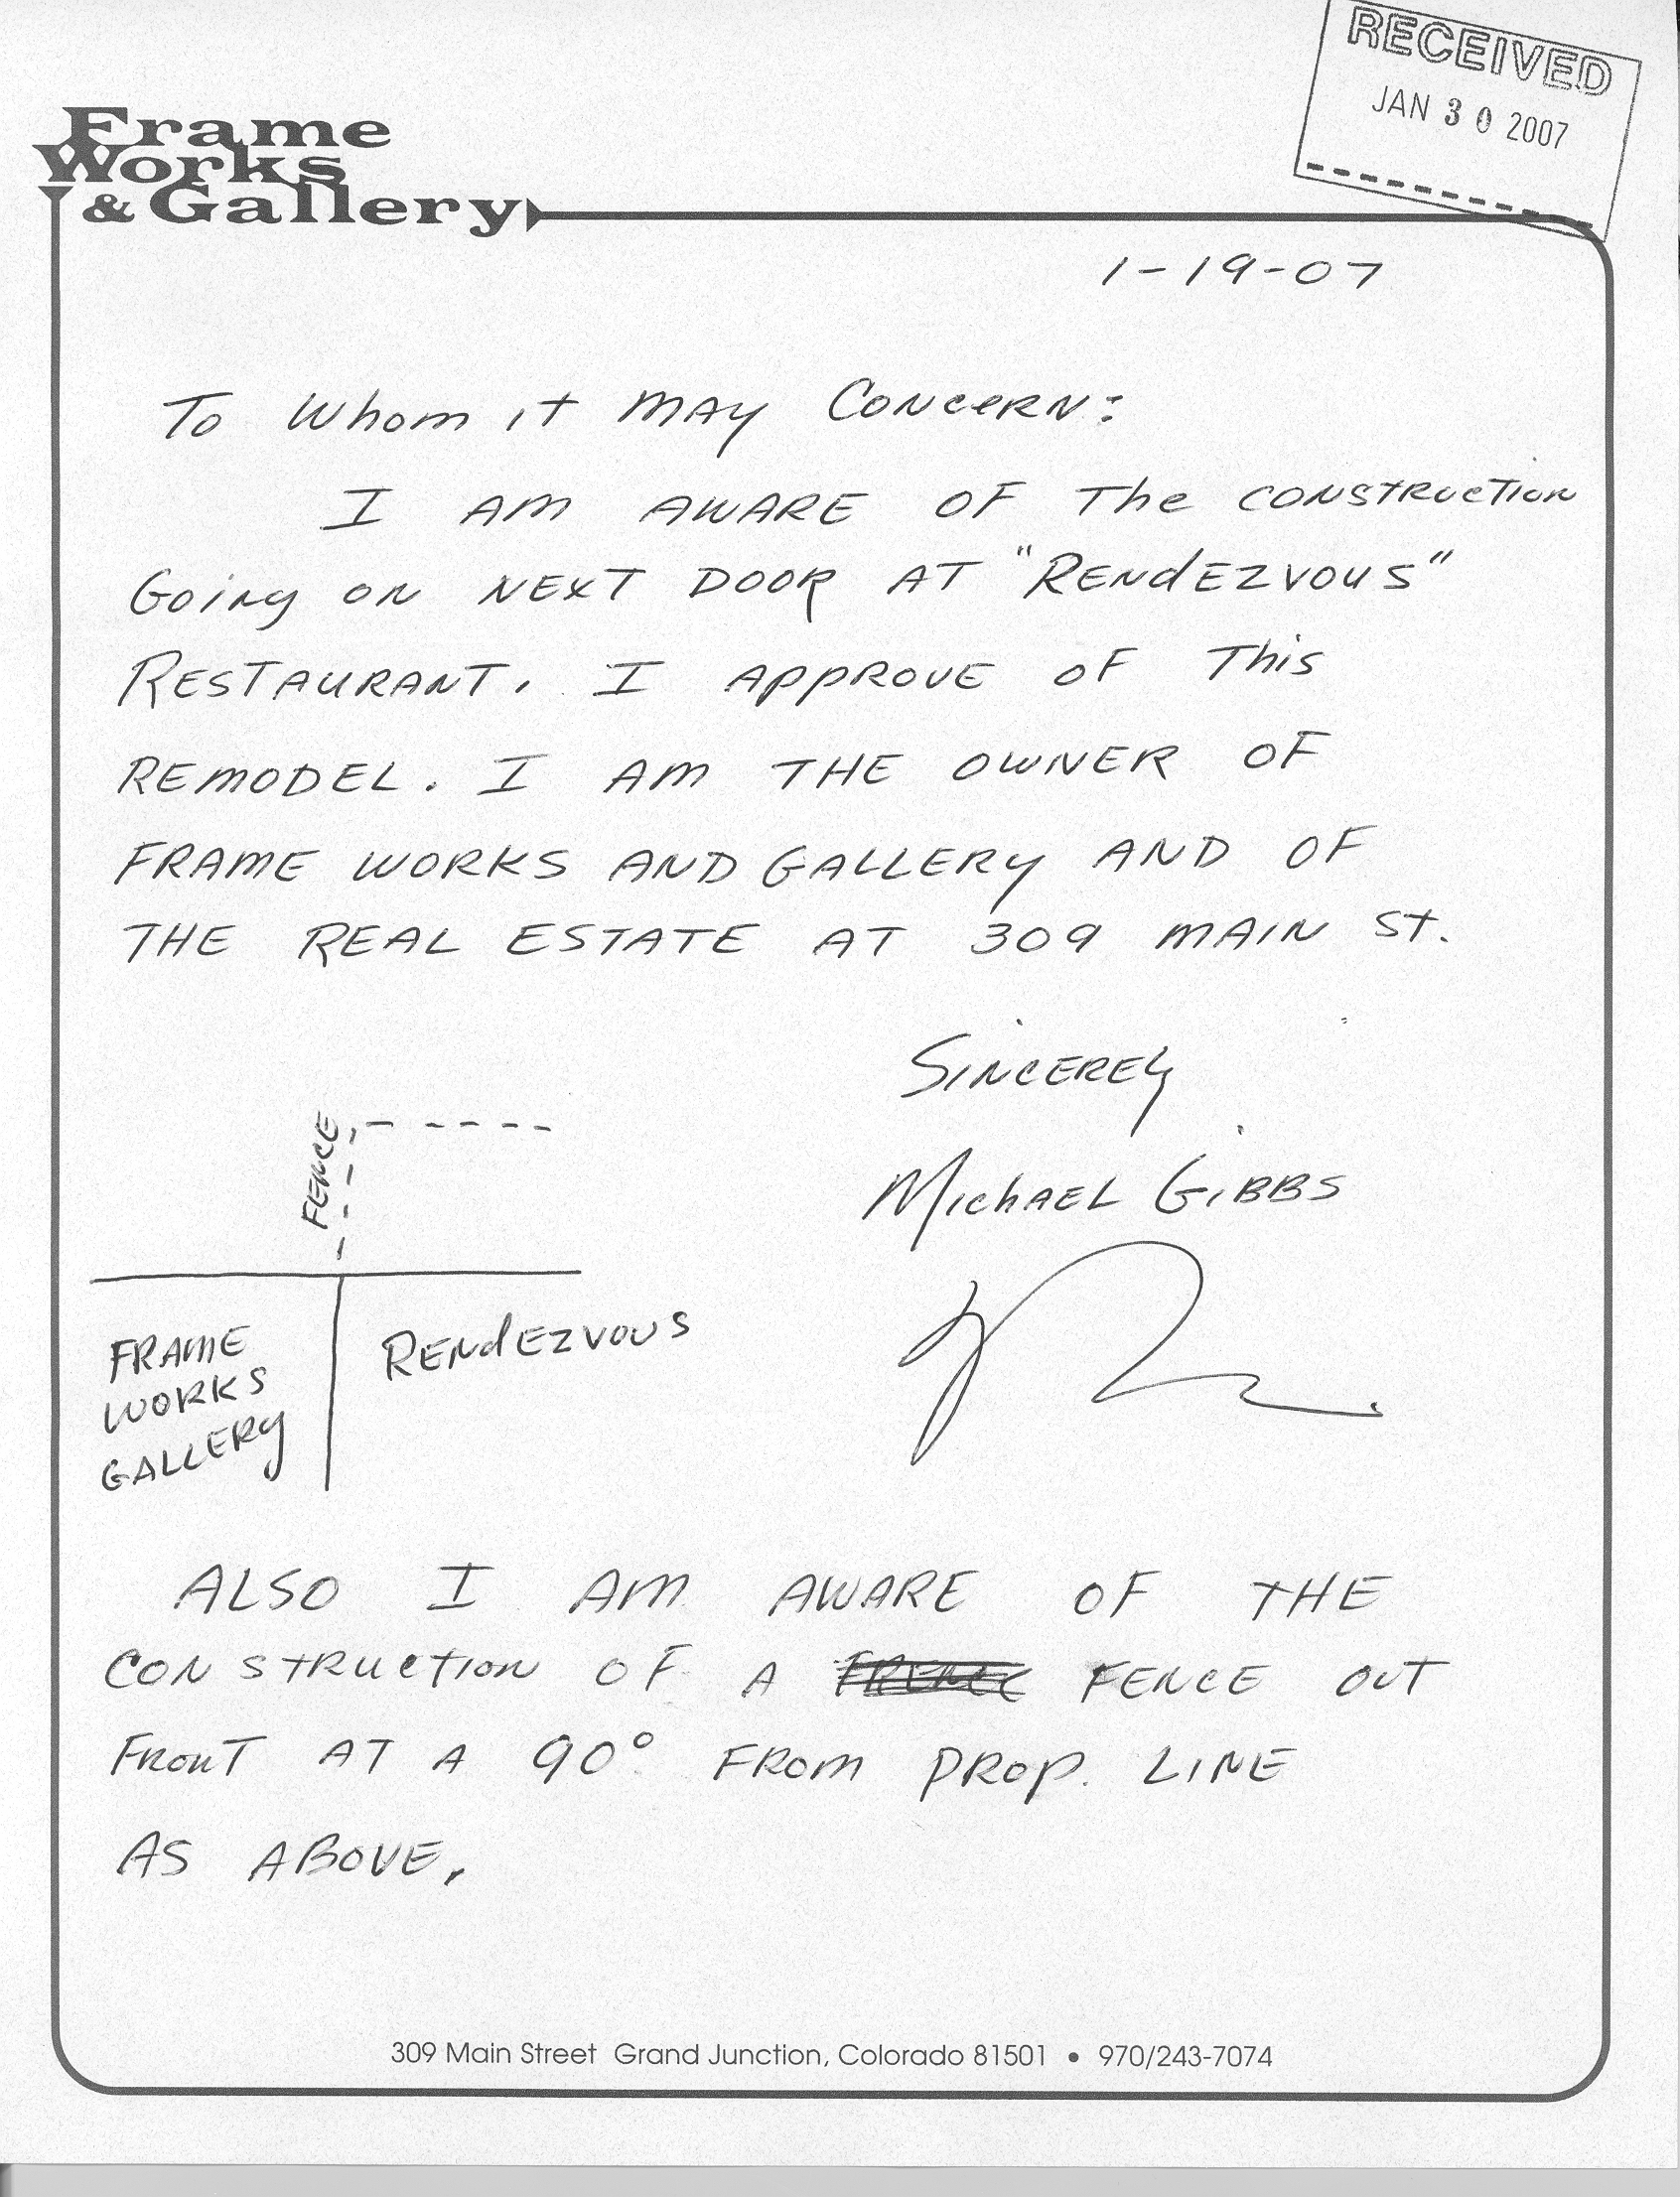 RECEIVED
JAN 30 2007
Frame
Works
& Gallery
1-19-07
To Whom it MAY CONCERN:
I AM AWARE OF The CONSTRUCTION
Going ON NEXT DOOR AT "RENDEZVOUS"
RESTAURANT. I APPROVE OF This
REMODEL. I AM THE OWNER OF
FRAME WORKS AND GALLERY AND OF
THE REAL ESTATE AT 309 MAIN St.
SINCEREly
MichAEL GIBBS
FENCE
FRAME
WORKS
GALLERY
RENdEZVOUS
ALSO I AM AWARE OF THE
CONSTRUCTION OF A FENCE OUT
FRONT AT A 90° FROM PROP. LINE
AS ABOVE.
309 Main Street Grand Junction, Colorado 81501 • 970/243-7074